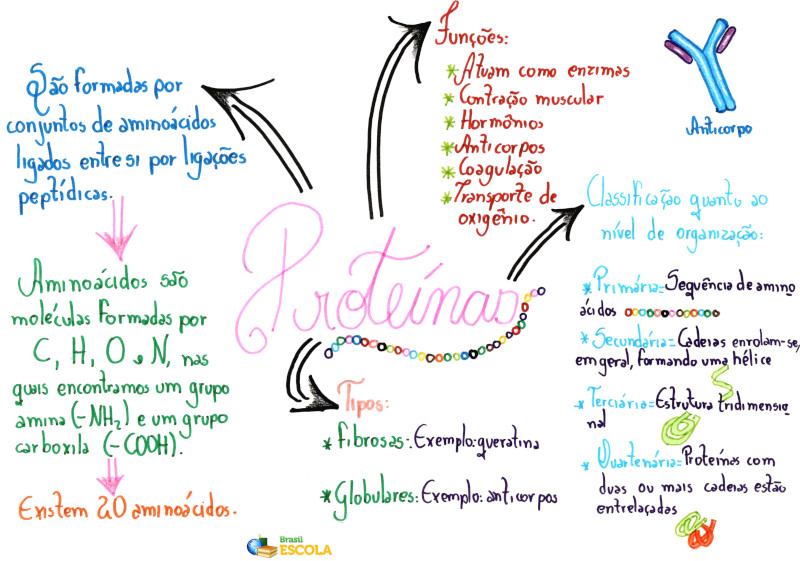 Proteínas
São formadas por
conjuntos de aminoácidos
ligados entre si por ligações
peptídicas.
Aminoácidos são
moléculas formadas por
C, H, O e N, nas
quais encontramos um grupo
amina (-NH2) e um grupo
carboxila (-COOH).
Existem 20 aminoácidos.
Funções:
* Atuam como enzimas
* Contração muscular
* Hormônios
* Anticorpos
* Coagulação
* Transporte de
oxigênio.
Anticorpo
Classificação quanto ao
nível de organização:
* Primária= Sequência de amino
ácidos
* Secundária= Cadeias enrolam-se,
em geral, formando uma hélice
* Terciária= Estrutura tridimensio
nal
* Quartenária= Proteínas com
duas ou mais cadeias estão
entrelaçadas
Tipos:
* Fibrosas: Exemplo: queratina
* Globulares: Exemplo: anticorpos
Brasil
ESCOLA